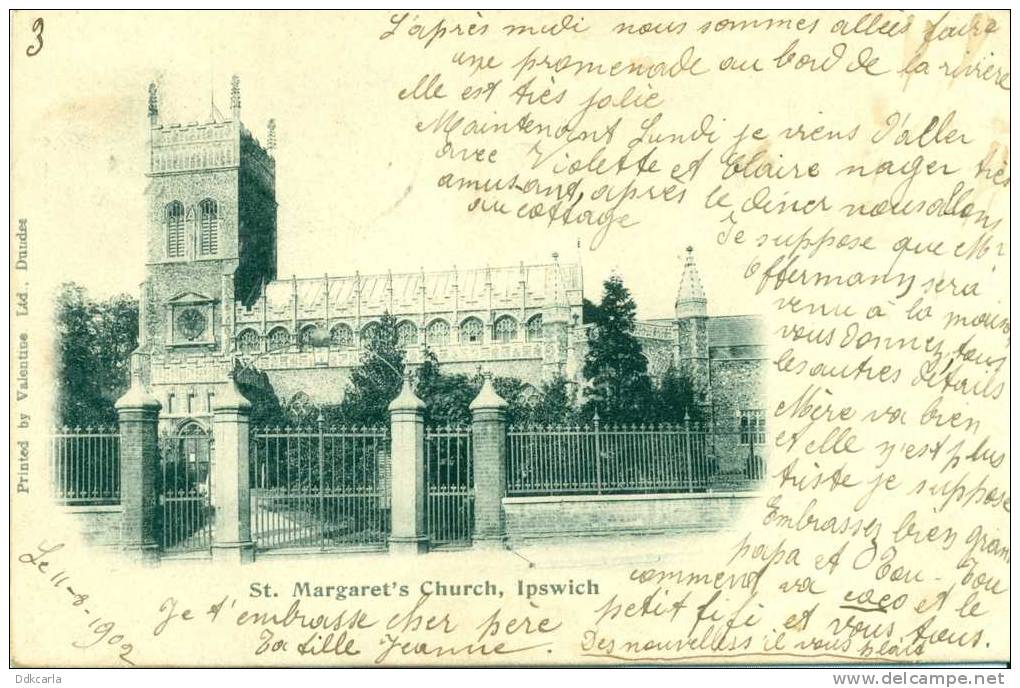 3
L'après midi nous sommes allées faire
une promenade au bord de la rivière
elle est très jolie
Maintenant Lundi je viens d'aller
avec Violette et Claire nager très
amusant, après le diner nous allons
au cottage
Je suppose que Mr
Offermany sera
venu à la maison
vous donnez tous
les autres détails
Mère va bien
et elle n'est plus
triste je suppose
Embrassez bien grand
papa et Lou-Lou
comment va coco et le
petit fifi et vous tous.
Des nouvelles s'il vous plait
Je t'embrasse cher père
Ta fille Jeanne.
Le 11-8-1902
St. Margaret's Church, Ipswich
Printed by Valentine Ltd., Dundee
Ddkarla
www.delcampe.net